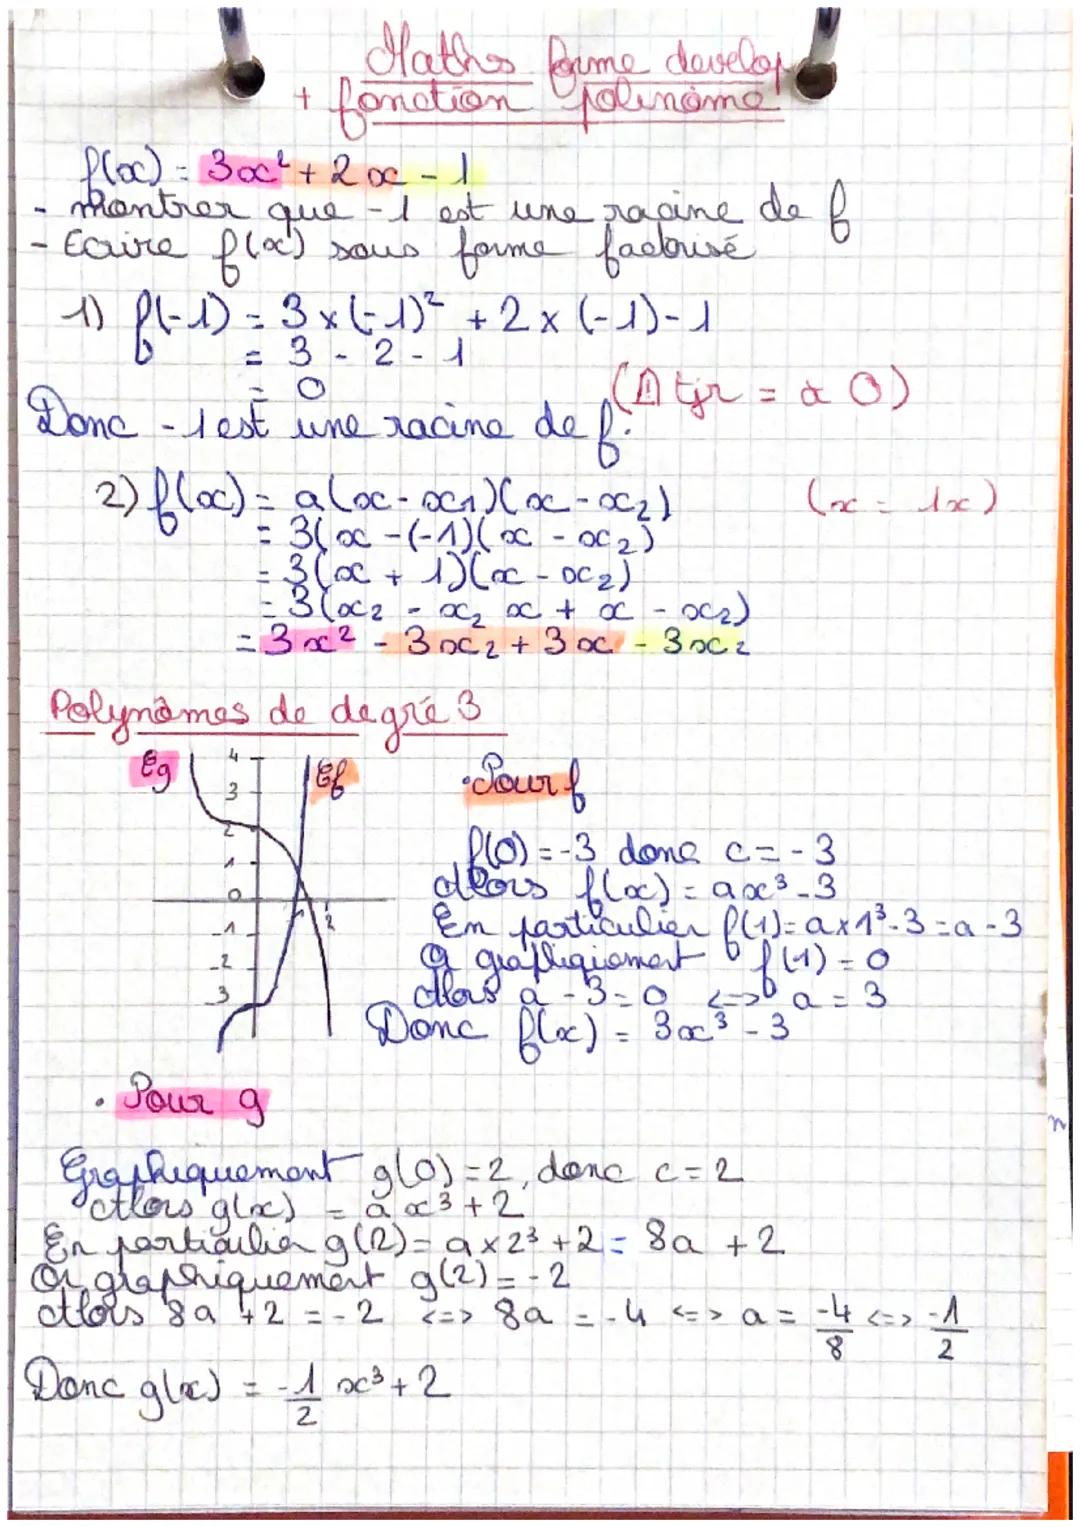 Maths forme develop
+ fonction polinôme
f(x) = 3x² + 2x - 1
- montrer que -1 est une racine de f
- Ecrire f(x) sous forme factorisé
1) f(-1) = 3 × (-1)² + 2 × (-1) - 1
= 3 - 2 - 1
= 0
(⚠ tjr = à 0)
Donc -1 est une racine de f.
2) f(x) = a(x - x₁)(x - x₂) (x = 1x)
= 3(x - (-1)(x - x₂)
= 3(x + 1)(x - x₂)
= 3(x₂ - x₂ x + x - x₂)
= 3x² - 3x₂ + 3x - 3x₂
Polynômes de degré 3
Cg Cf
4
3
2
1
0
-1
-2
-3
1 2
• Pour f
f(0) = -3 donc c = -3
Alors f(x) = ax³ - 3
En particulier f(1) = a×1³ - 3 = a - 3
Or graphiquement f(1) = 0
Alors a - 3 = 0 <=> a = 3
Donc f(x) = 3x³ - 3
• Pour g
Graphiquement g(0) = 2, donc c = 2
Alors g(x) = a x³ + 2
En particulier g(2) = a × 2³ + 2 = 8a + 2
Or graphiquement g(2) = -2
Alors 8a + 2 = -2 <=> 8a = -4 <=> a = -4/8 <=> -1/2
Donc g(x) = -1/2 x³ + 2